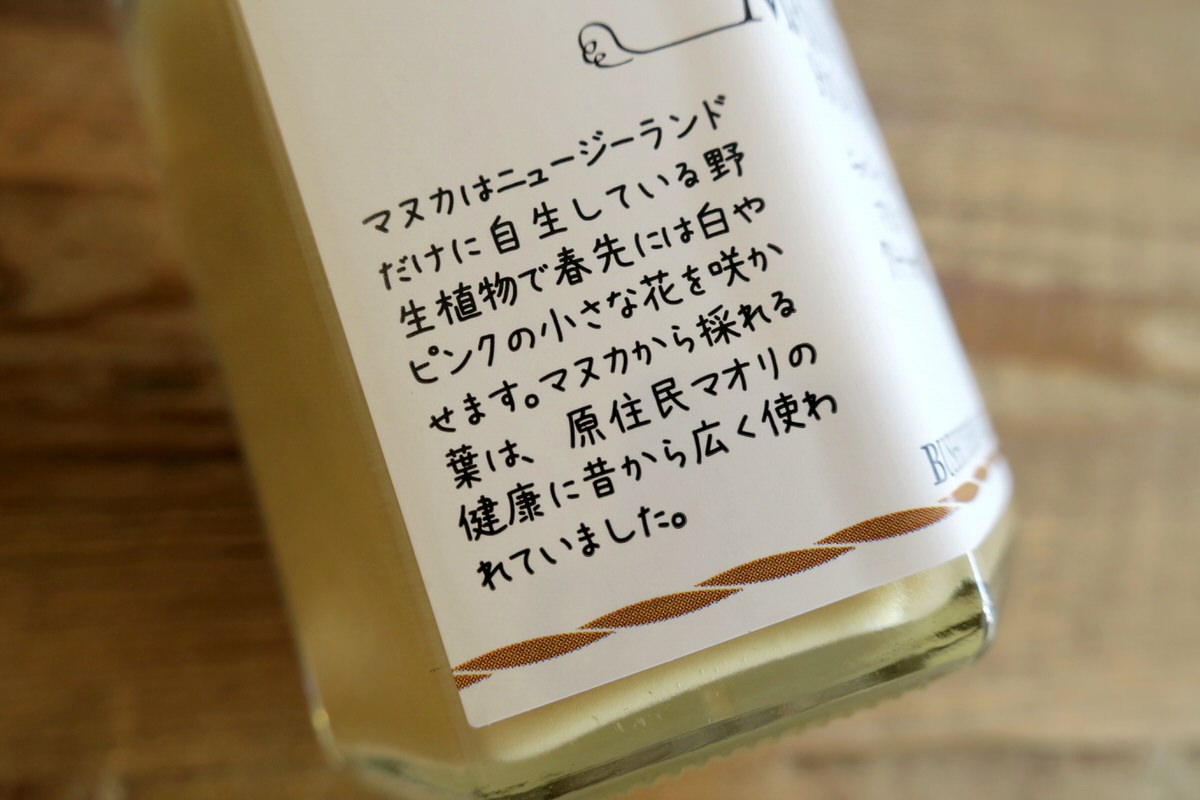 マヌカはニュージーランド
だけに自生している野
生植物で春先には白や
ピンクの小さな花を咲か
せます。マヌカから採れる
葉は、原住民マオリの
健康に昔から広く使わ
れていました。